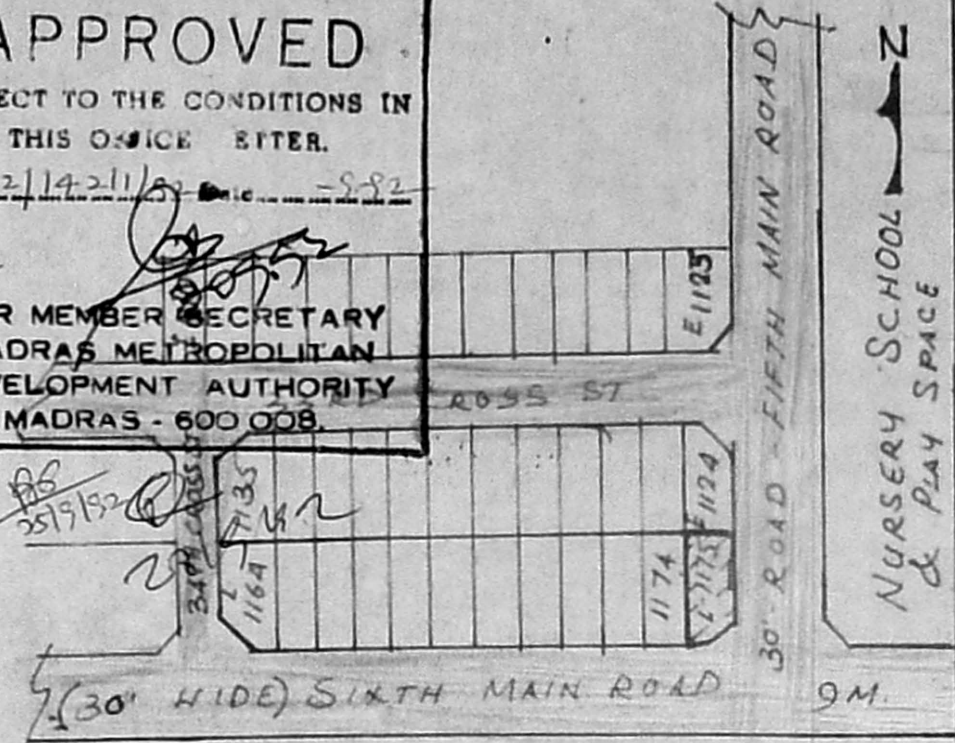 APPROVED
ECT TO THE CONDITIONS IN
THIS OFFICE ETTER.
2/14211/
-9-92
R MEMBER SECRETARY
ADRAS METROPOLITAN
ELOPMENT AUTHORITY
MADRAS - 600 008.
25/9/92
E 1125
ROSS ST
CROSS
1135
E 1124
1164
1174
1175
30' ROAD - FIFTH MAIN ROAD
N
NURSERY SCHOOL
& PLAY SPACE
(30' WIDE) SIXTH MAIN ROAD
9M.